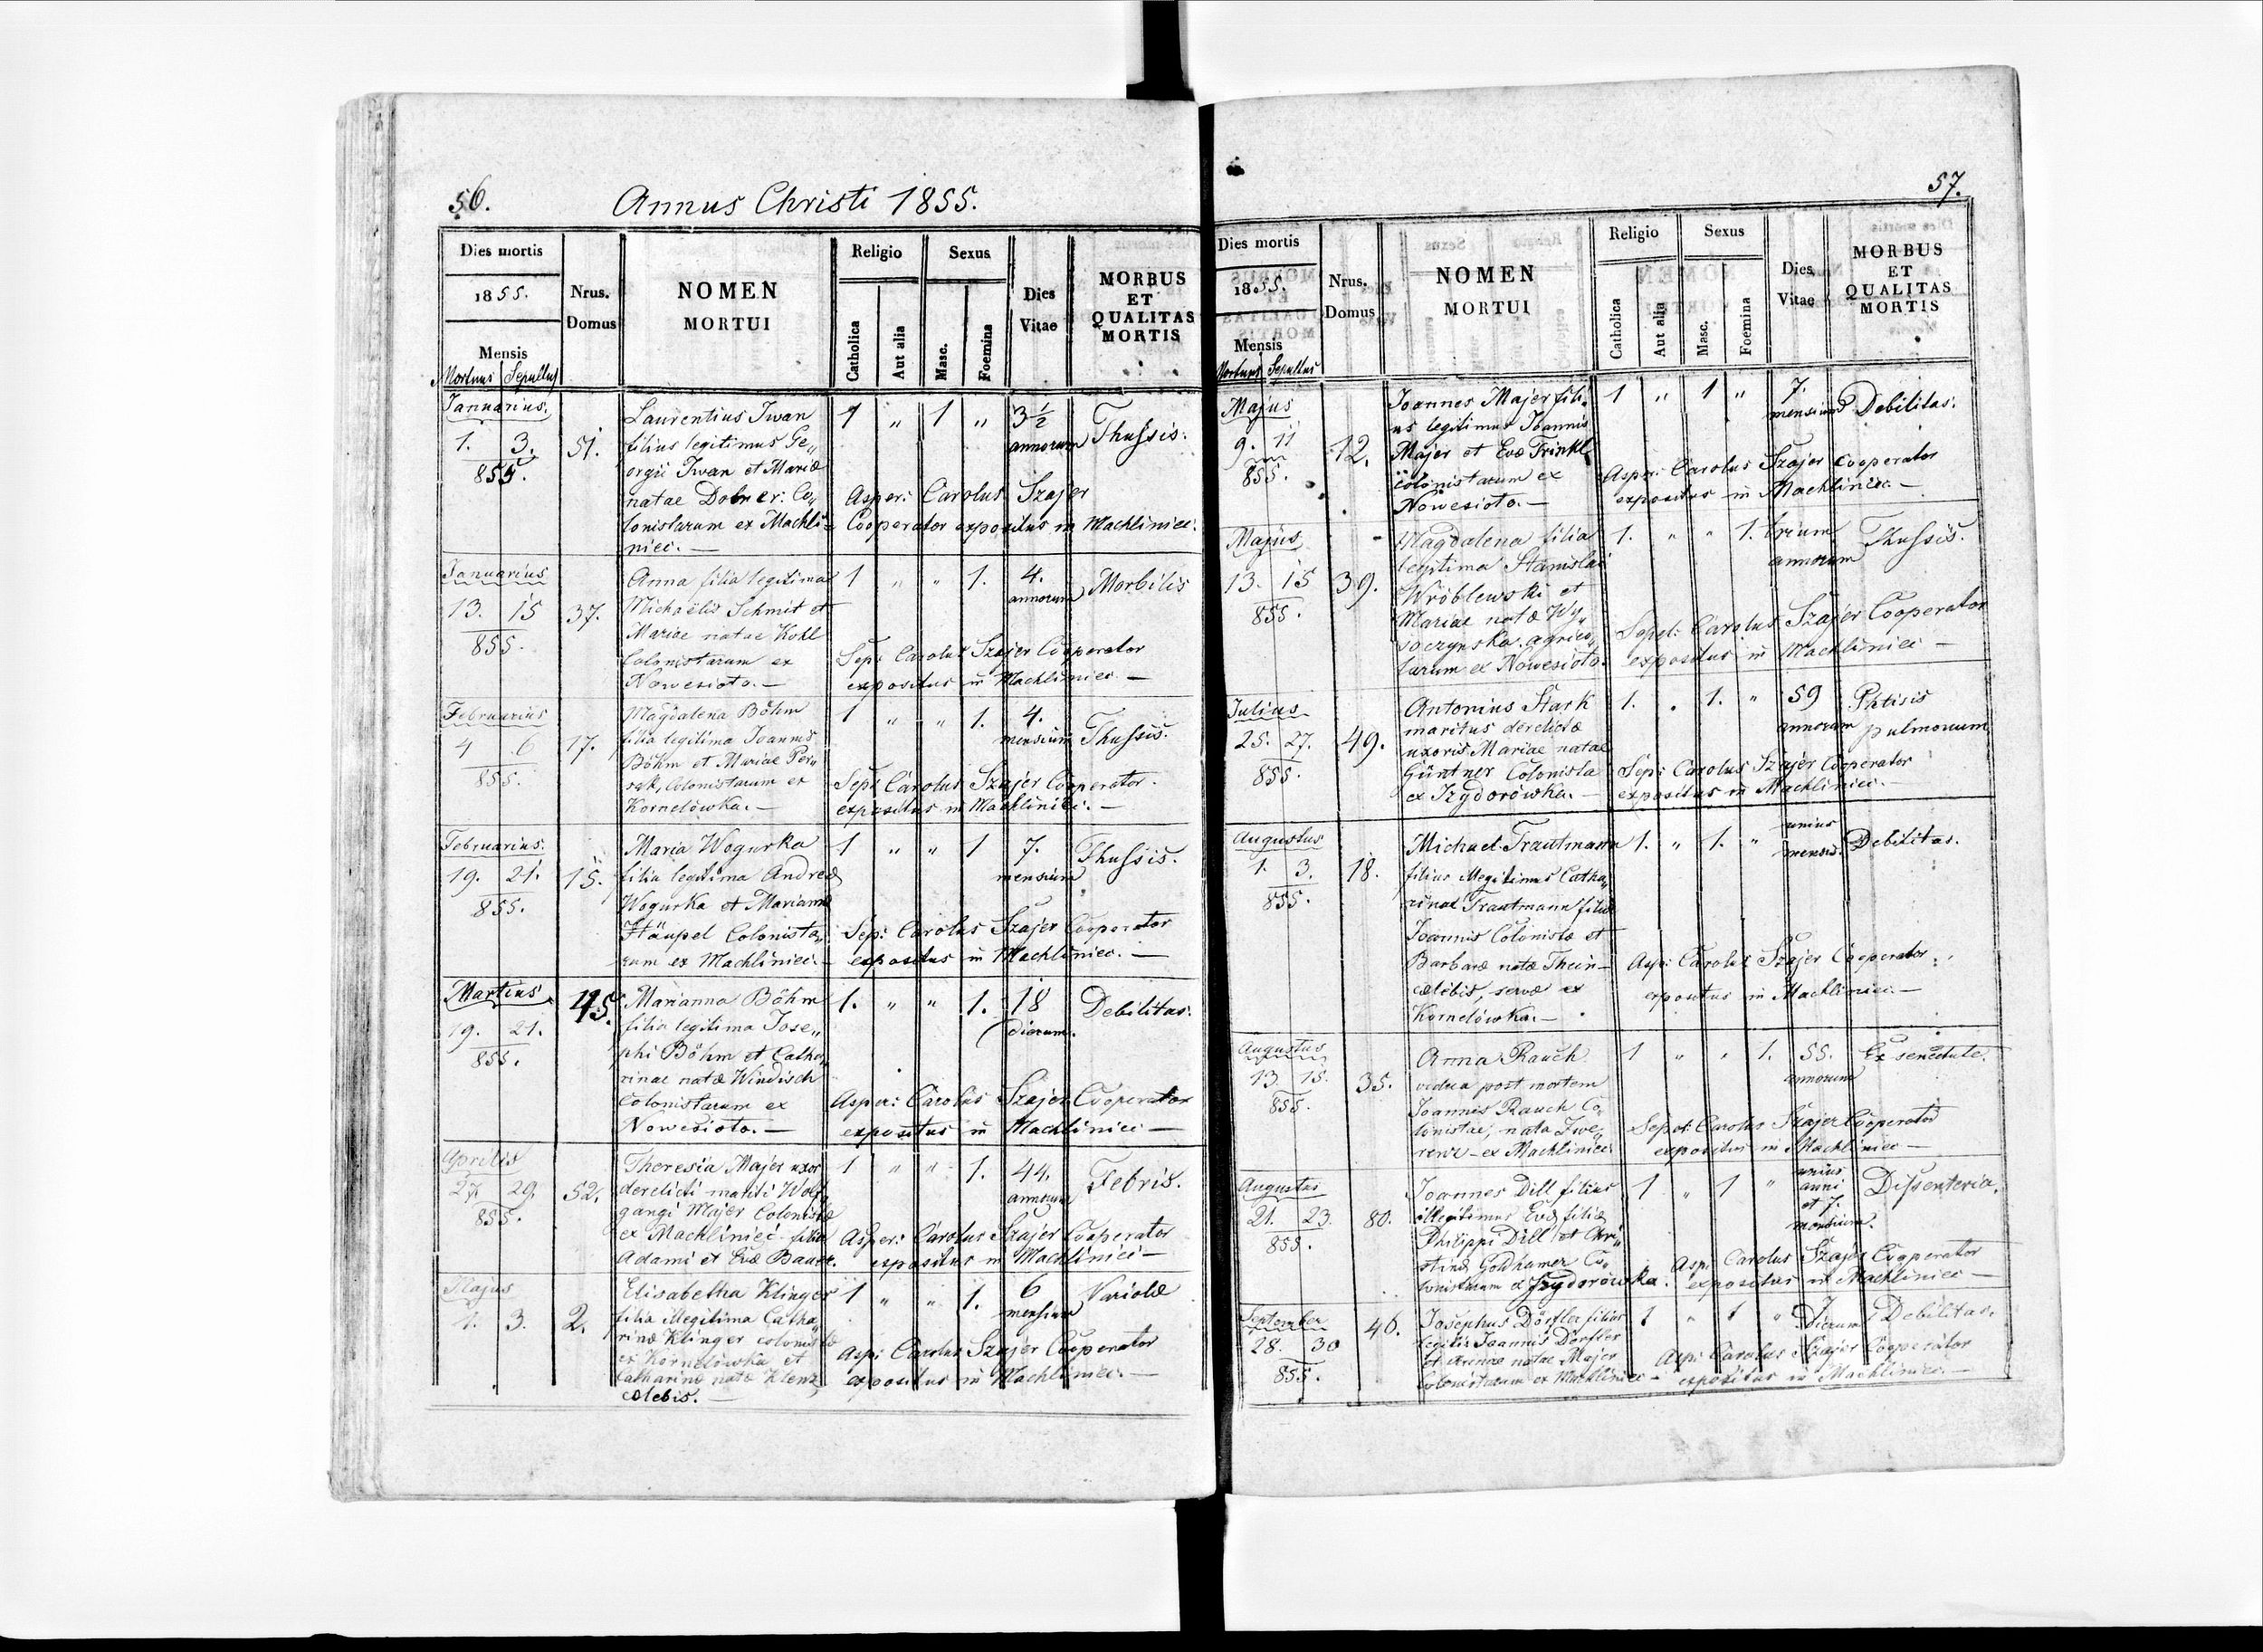 56.
Annus Christi 1855.
Dies mortis
1855.
Mensis
Mortuus Sepultus
Nrus. Domus
NOMEN
MORTUI
Religio
Catholica
Aut alia
Sexus
Masc.
Foemina
Dies Vitae
MORBUS
ET
QUALITAS
MORTIS
Januarius.
1. 3.
855.
51.
Laurentius Iwan
filius legitimus Ge„
orgii Iwan et Mariæ
natae Dobner: Co„
lonistarum ex Machli-
niec. —
1 „ 1 „
3½
annorum
Thussis.
Asper: Carolus Szajer
Cooperator expositus in Machliniec.
Januarius
13. 15
855.
37.
Anna filia legitima
Michaëlis Schmit et
Mariae natae Kohl
Colonistarum ex
Nowesioto. —
1 „ „ 1.
4.
annorum
Morbilis
Sep: Carolus Szajer Cooperator
expositus in Machliniec. —
Februarius
4 6
855.
17.
Magdalena Böhm
filia legitima Joannis
Böhm et Mariae Per„
sak, Colonistarum ex
Kornelówka. —
1 „ „ 1.
4.
mensium
Thussis.
Sep: Carolus Szajer Cooperator.
expositus in Machliniec. —
Februarius.
19. 21.
855.
15.
Maria Wogurka
filia legitima Andreæ
Wogurka et Mariannæ
Häupel Colonista„
rum ex Machliniec. —
1 „ „ 1
7.
mensium
Thussis.
Sep: Carolus Szajer Cooperator
expositus in Machliniec. —
Martius
19. 21.
855.
45.
Marianna Böhm
filia legitima Jose„
phi Böhm et Catha„
rinae natæ Windisch
Colonistarum ex
Nowesioto. —
1. „ „ 1.
18
dierum.
Debilitas.
Asper: Carolus Szajer Cooperator
expositus in Machliniec —
Aprilis
27 29
855.
52.
Theresia Majer uxor
derelicti mariti Wolf„
gangi Majer Colonistæ
ex Machliniec filia
Adami et Evæ Bauer.
1 „ „ 1.
44.
annorum
Febris.
Asper: Carolus Szajer Cooperator
expositus in Machliniec —
Majus
1. 3.
2.
Elisabetha Klinger
filia illegitima Catha„
rinæ Klinger colonistæ
ex Kornelówka et
Catharinæ natæ Klenz
cælebis. —
1 „ „ 1.
6
mensium
Variolæ
Asp: Carolus Szajer Cooperator
expositus in Machliniec. —
57.
Dies mortis
1855.
Mensis
Mortuus Sepultus
Nrus. Domus
NOMEN
MORTUI
Religio
Catholica
Aut alia
Sexus
Masc.
Foemina
Dies Vitae
MORBUS
ET
QUALITAS
MORTIS
Majus
9. 11
855.
12.
Joannes Majer fili„
us legitimus Joannis
Majer et Evæ Trinkl
colonistarum ex
Nowesioto. —
1 „ 1 „
7.
mensium
Debilitas.
Asper: Carolus Szajer Cooperator
expositus in Machliniec. —
Majus
13. 15
855.
39.
Magdalena filia
legitima Stanislai
Wróblewski et
Mariae natæ Wy„
soczynska agrico„
larum ex Nowesioto.
1. „ „ 1.
trium
annorum
Thussis.
Sepel: Carolus Szajer Cooperator
expositus in Machliniec —
Julius
25. 27.
855.
49.
Antonius Stark
maritus derelictæ
uxoris Mariae natae
Güntner Colonista
ex Izydorówka. —
1. „ 1. „
59
annorum
Phtisis
pulmonum
Sep: Carolus Szajer Cooperator
expositus in Machliniec. —
Augustus
1. 3.
855.
18.
Michael Trautmann
filius illegitimus Catha„
rinae Trautmann filiæ
Joannis Colonistæ et
Barbaræ natæ Thein —
cælebis, servæ ex
Kornelówka. —
1. „ 1. „
unius
mensis.
Debilitas.
Asp: Carolus Szajer Cooperator
expositus in Machliniec. —
Augustus
13. 15.
855.
35.
Anna Rauch
vidua post mortem
Joannis Rauch Co„
lonistae, nata Zwe„
renz — ex Machliniec
1 „ „ 1.
55.
annorum
Ex senectute.
Sepel: Carolus Szajer Cooperator
expositus in Machliniec —
Augustus
21. 23.
855.
80.
Joannes Dill filius
illegitimus Evæ filiæ
Philippi Dill et Chri„
stinæ Goldhamer Co„
lonistarum ex Izydorówka.
1 „ 1 „
unius
anni
et 7.
mensium.
Dissenteria.
Asp: Carolus Szajer Cooperator
expositus in Machliniec —
September
28. 30
855.
46.
Josephus Dörfler filius
legitis Joannis Dörfler
et Annæ natae Majer
Colonistarum ex Machliniec —
1 „ 1 „
Dierum
Debilitas.
Asp: Carolus Szajer Cooperator
expositus in Machliniec. —